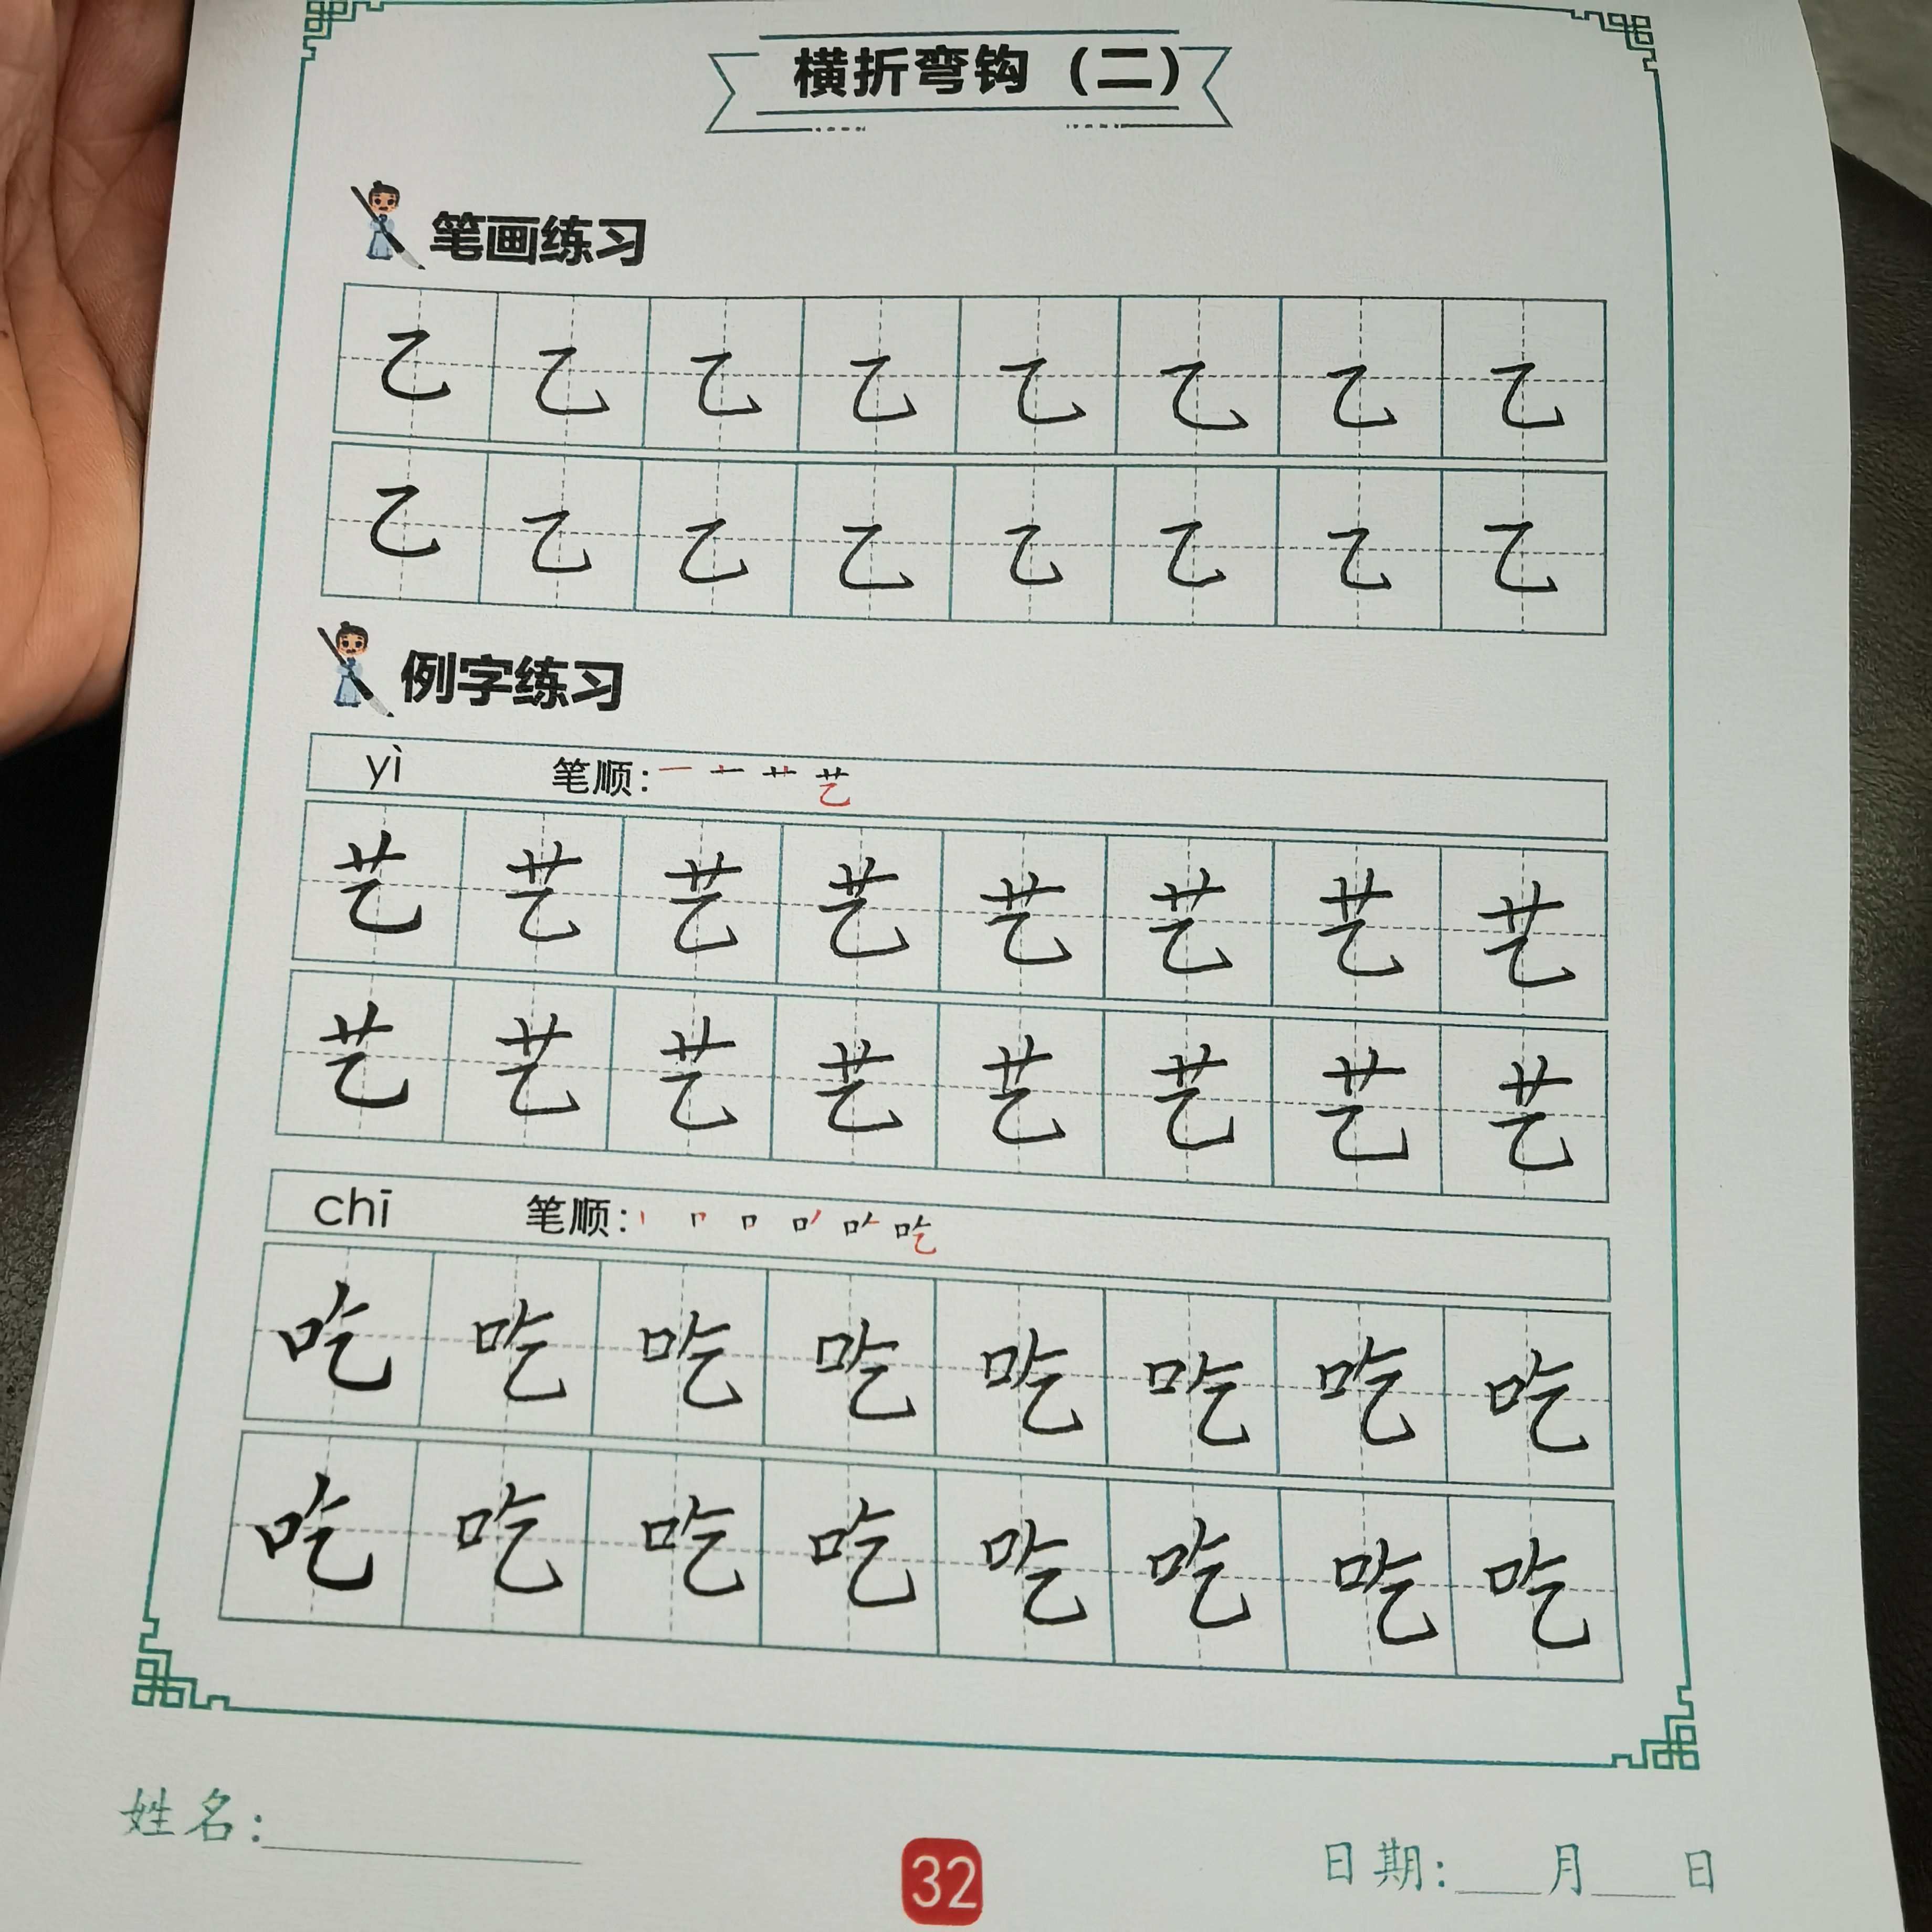 横折弯钩（二）
笔画练习
乙 乙 乙 乙 乙 乙 乙 乙
乙 乙 乙 乙 乙 乙 乙 乙
例字练习
yì 笔顺: 一 十 艹 艺
艺 艺 艺 艺 艺 艺 艺 艺
艺 艺 艺 艺 艺 艺 艺 艺
chī 笔顺: 丨 𠃍 口 口丿 口𠂉 吃
吃 吃 吃 吃 吃 吃 吃 吃
吃 吃 吃 吃 吃 吃 吃 吃
姓名:
32
日期: 月 日